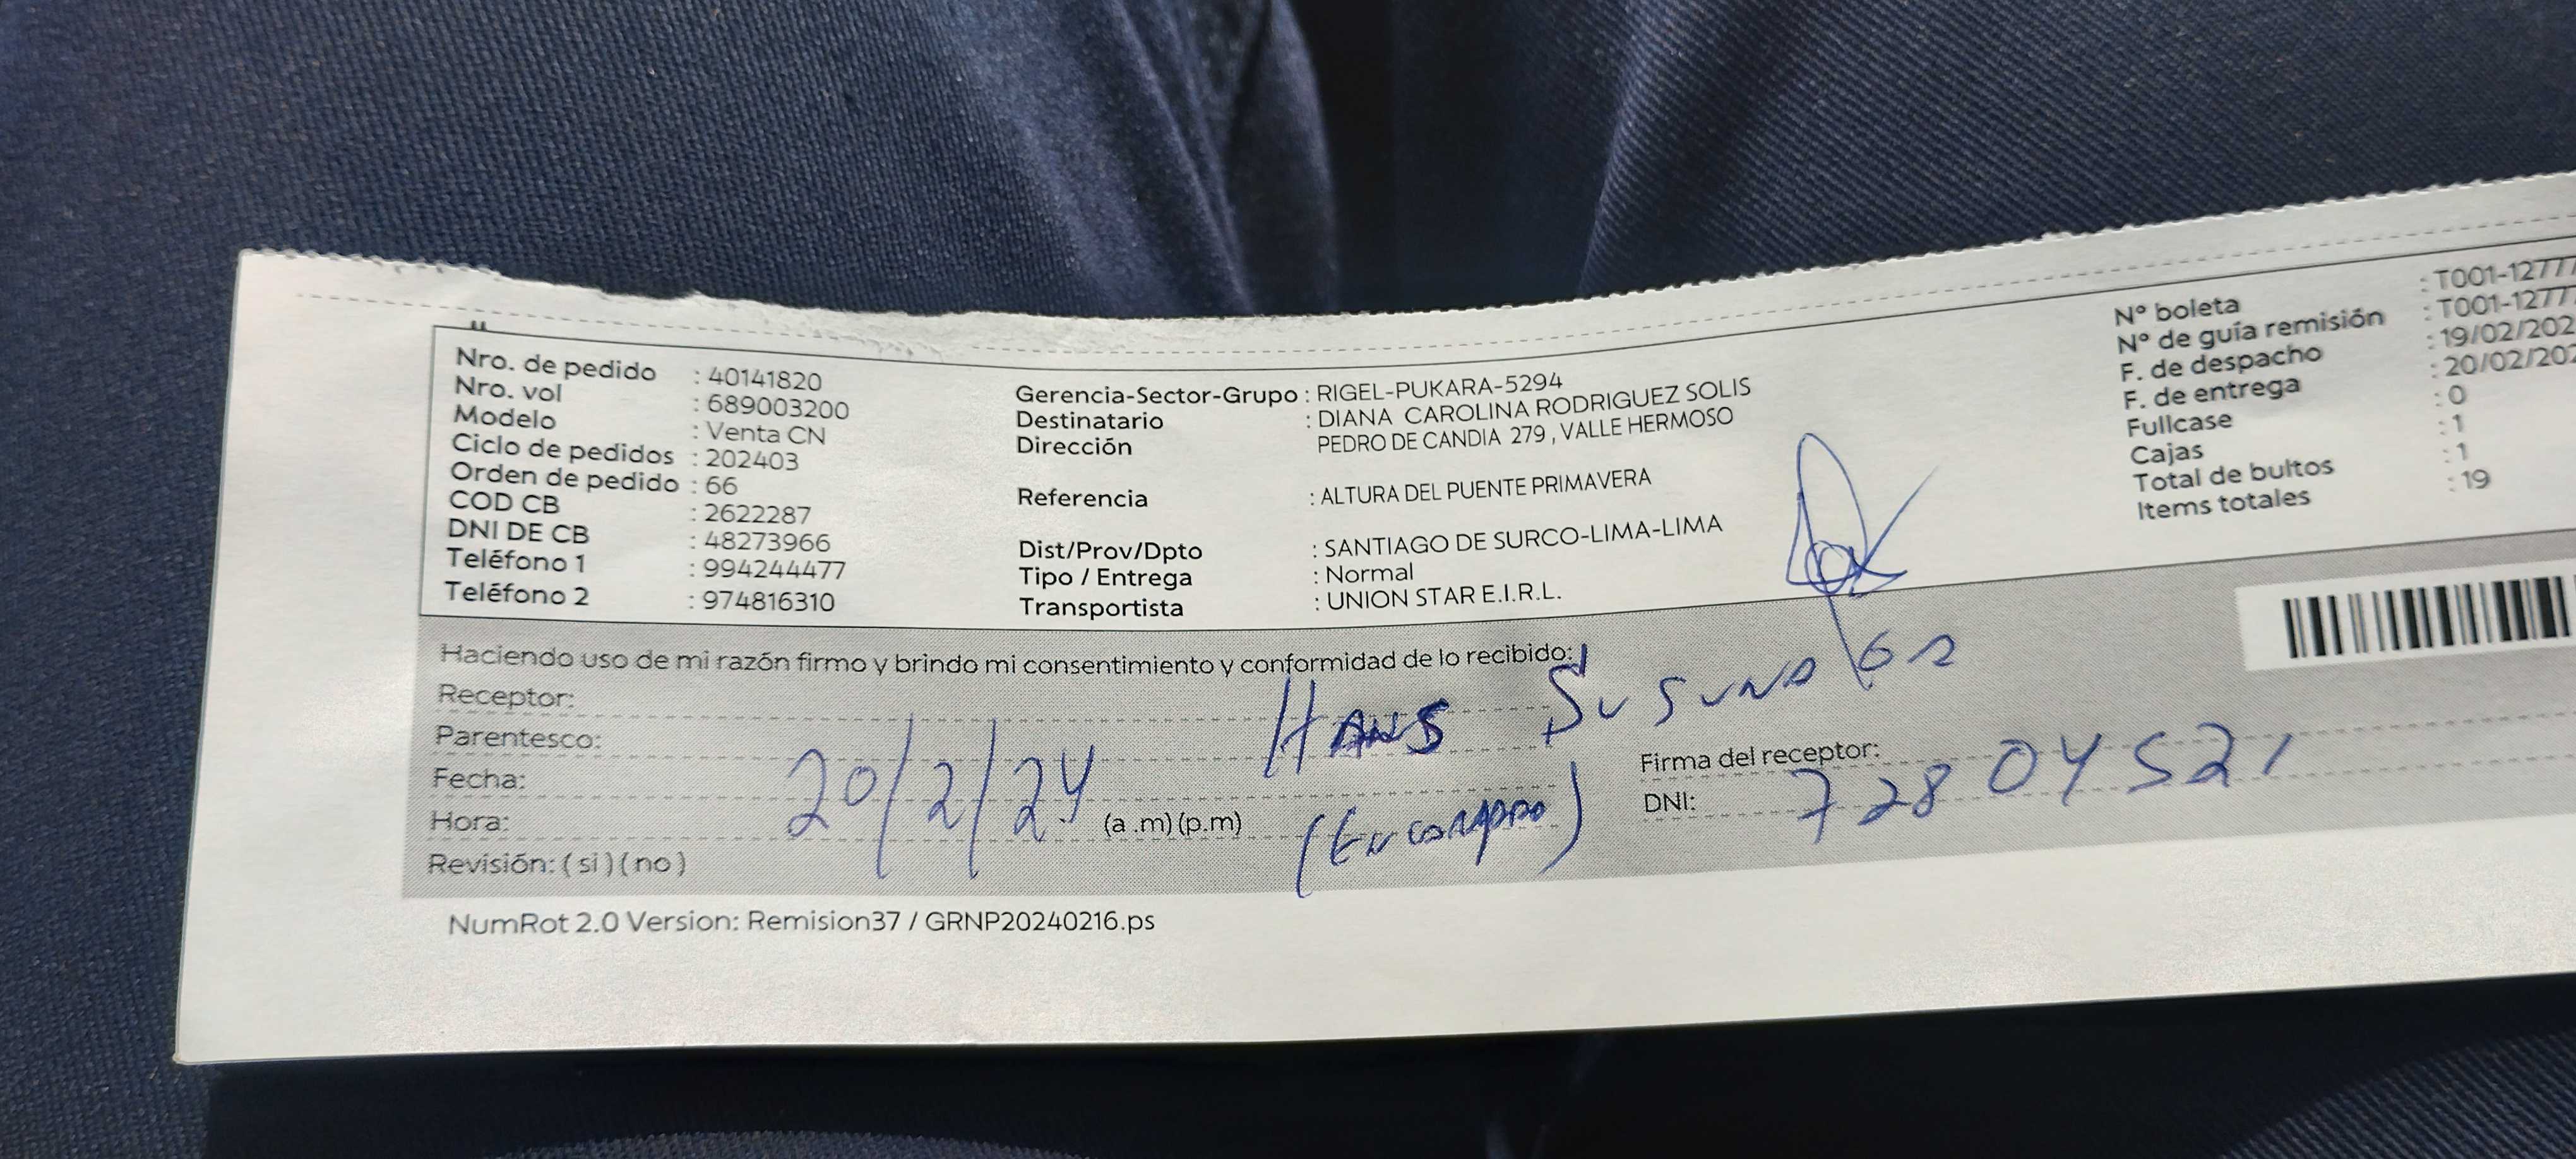 Nro. de pedido : 40141820
Nro. vol : 689003200
Modelo : Venta CN
Ciclo de pedidos : 202403
Orden de pedido : 66
COD CB : 2622287
DNI DE CB : 48273966
Teléfono 1 : 994244477
Teléfono 2 : 974816310
Gerencia-Sector-Grupo : RIGEL-PUKARA-5294
Destinatario : DIANA CAROLINA RODRIGUEZ SOLIS
Dirección PEDRO DE CANDIA 279 , VALLE HERMOSO
Referencia : ALTURA DEL PUENTE PRIMAVERA
Dist/Prov/Dpto : SANTIAGO DE SURCO-LIMA-LIMA
Tipo / Entrega : Normal
Transportista : UNION STAR E.I.R.L.
N° boleta : T001-12777
N° de guía remisión : T001-12777
F. de despacho : 19/02/202
F. de entrega : 20/02/202
Fullcase : 0
Cajas : 1
Total de bultos : 1
Items totales : 19
Haciendo uso de mi razón firmo y brindo mi consentimiento y conformidad de lo recibido:
Receptor: HANS
Parentesco:
Fecha: 20/2/24
Hora: (a .m) (p.m)
Revisión: ( si ) ( no )
Firma del receptor:
DNI: 72804521
NumRot 2.0 Version: Remision37 / GRNP20240216.ps